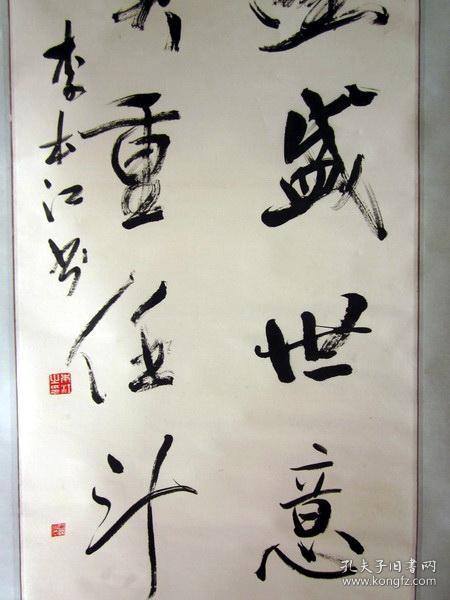 盛世意
重任斗
李本江书
孔夫子旧书网
www.kongfz.com